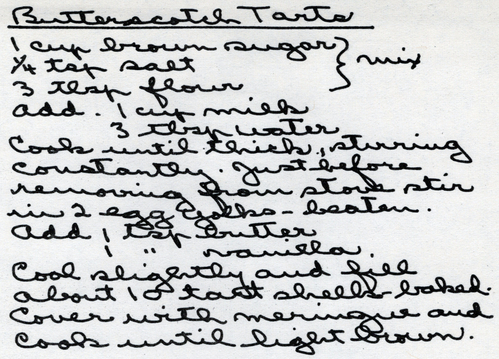 Butterscotch Tarts
1 cup brown sugar } mix
1/4 tsp salt
3 tbsp flour
add. 1 cup milk
3 tbsp water
Cook until thick, stirring
constantly. Just before
removing from stove stir
in 2 egg yolks - beaten.
Add 1 tsp butter
1 " vanilla.
Cool slightly and fill
about 10 tart shells - baked.
Cover with meringue and
Cook until light brown.